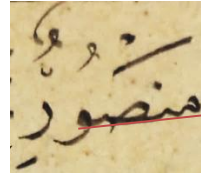 مَنْصُورٌ